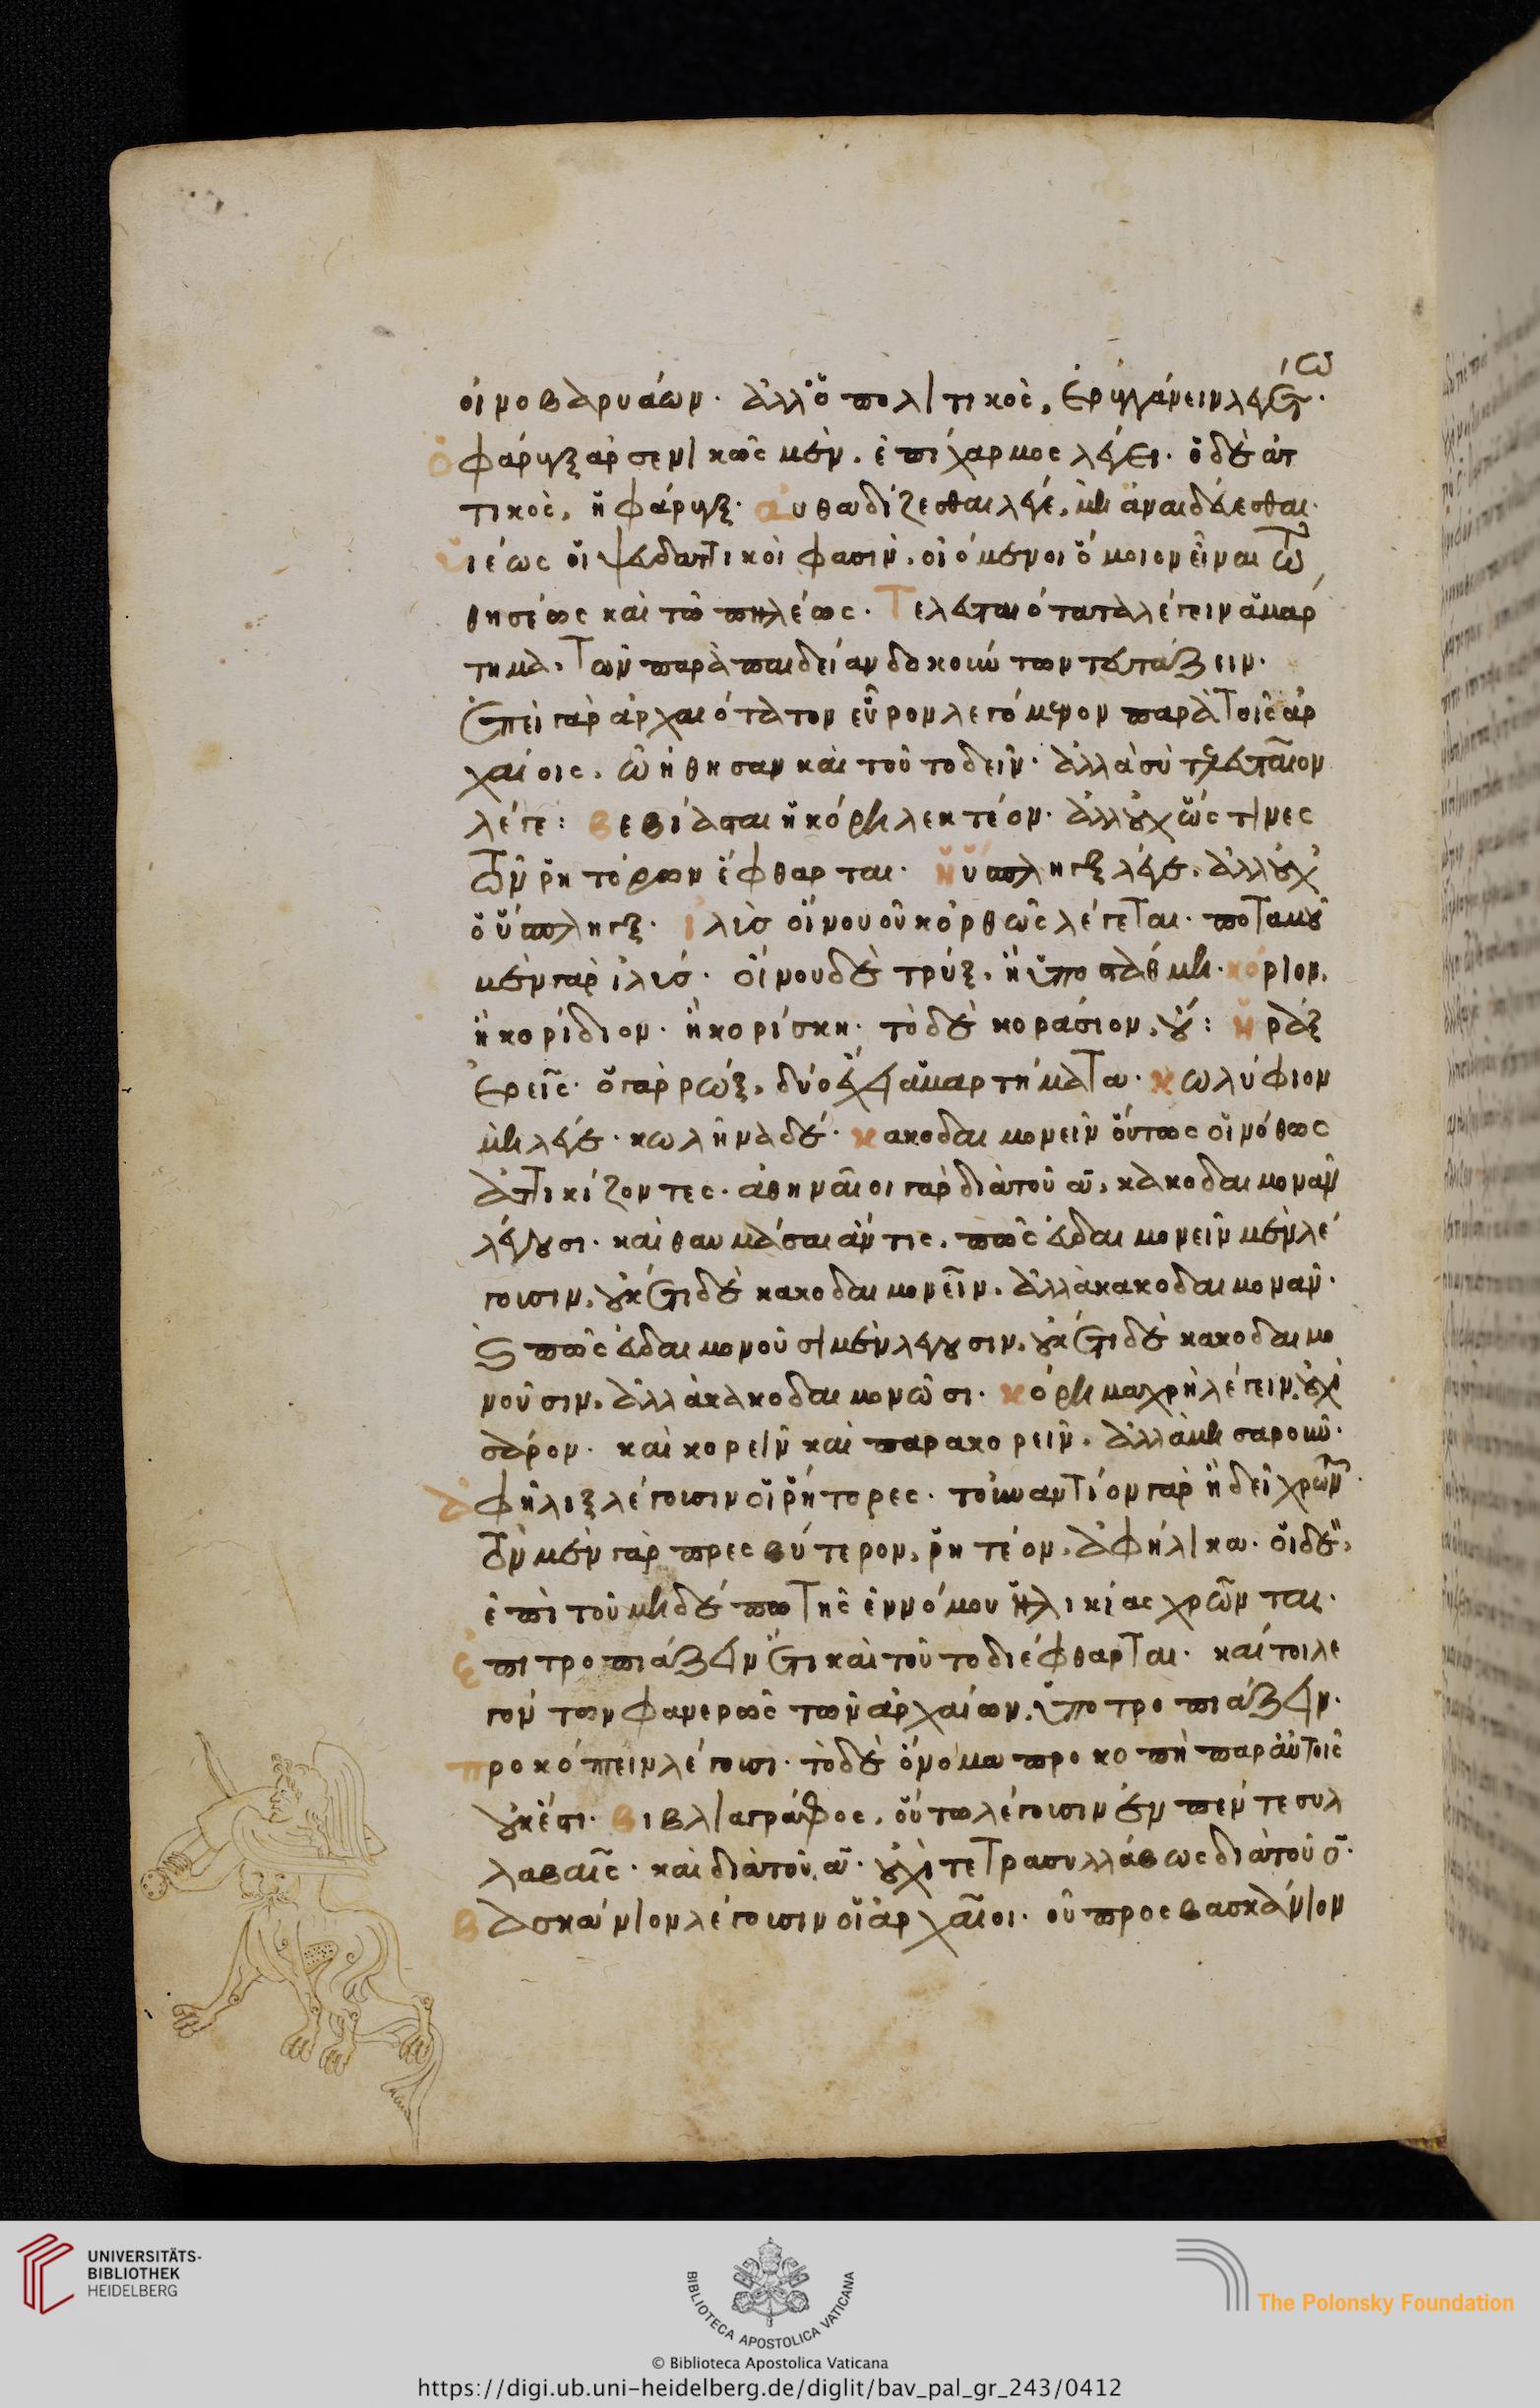 ιω
οἰνοβαρυάων. ἀλλ' ὁ πολιτικὸς, ἐρυγγάνειν λέγει.
ὁ φάρυγξ ἀρσενικῶς μὲν, ἐπίχαρμος λέγει. ὁ δὲ ἀτ
τικὸς, ἡ φάρυγξ. αὐθαδίζεσθαι λέγε, μὴ ἀναιδεύεσθαι.
υἱέως οἱ ψευδαττικοὶ φασὶν, οἰόμενοι ὅμοιον εἶναι τῶ
θησέως καὶ τῶ πηλέως. τελευταιότατα λέγειν ἁμάρ
τημα, τῶν παρὰ παιδείαν δοκούντων
ἐπεὶ γὰρ ἀρχαιότατον εὗρον λεγόμενον παρὰ τοῖς ἀρ
χαίοις, ὠήθησαν καὶ τοῦτο δεῖν. ἀλλὰ σὺ τελευταῖον
λέγε: βεβίασται ἡ κόρη λεκτέον. ἀλλ' οὐχ ὥς τινες
τῶν ῥητόρων ἔφθαρται. ἡ ὕσπληγξ λέγε, ἀλλ' οὐχ
ὁ ὕσπληγξ. ἰλὺς οἴνου οὐκ ὀρθῶς λέγεται. ποταμοῦ
μὲν γὰρ ἰλύς. οἴνου δὲ τρύξ, ἢ ὑποστάθμη. κόριον,
ἢ κορίδιον. ἢ κορίσκη. τὸ δὲ κοράσιον, οὔ: ἡ ῥὰξ
ἐρεῖς. ὁ γὰρ ρώξ, δύο ἔχει ἁμαρτήματα. κωλύφιον
μὴ λέγε. κωλῆνα δέ. κακοδαιμονεῖν οὕτως οἱ νόθως
ἀττικίζοντες. ἀθηναῖοι γὰρ διὰ τοῦ α, κακοδαιμονᾶν
λέγουσι. καὶ θαυμάσαι ἄν τις, πῶς εὐδαιμονεῖν μὲν λέ
γουσιν, οὐκέτι δὲ κακοδαιμονεῖν, ἀλλὰ κακοδαιμονᾶν.
καὶ πῶς εὐδαιμονοῦσι μὲν λέγουσιν, οὐκέτι δὲ κακοδαιμο
νοῦσιν, ἀλλὰ κακοδαιμονῶσι. κόρημα χρὴ λέγειν, οὐχὶ
σάρον. καὶ κορεῖν καὶ παρακορεῖν, ἀλλὰ μὴ σαροῦν.
ἀφῆλιξ λέγουσιν οἱ ῥήτορες. τοὐναντίον γὰρ ἢ δεῖ χρῶν.
τὸν μὲν γὰρ πρεσβύτερον, ῥητέον, ἀφήλικα. οἱ δὲ,
ἐπὶ τοῦ μηδέπω τῆς ἐννόμου ἡλικίας χρῶνται.
ἐπιτροπιάζειν ἔτι καὶ τοῦτο διέφθαρται. καίτοι λε
γόντων φανερῶς τῶν ἀρχαίων, ὑποτροπιάζειν.
προκόπτειν λέγουσι. τὸ δὲ ὄνομα προκοπὴ παρ' αὐτοῖς
οὐκ ἔστι. βιβλιαγράφος, οὕτω λέγουσιν ἐν πέντε συλ
λαβαῖς. καὶ διὰ τοῦ α. οὐχὶ τετρασυλλάβως διὰ τοῦ ο.
βασκάνιον λέγουσιν οἱ ἀρχαῖοι. οὐ προσβασκάνιον
UNIVERSITÄTS-
BIBLIOTHEK
HEIDELBERG
BIBLIOTECA APOSTOLICA VATICANA
The Polonsky Foundation
© Biblioteca Apostolica Vaticana
https://digi.ub.uni-heidelberg.de/diglit/bav_pal_gr_243/0412